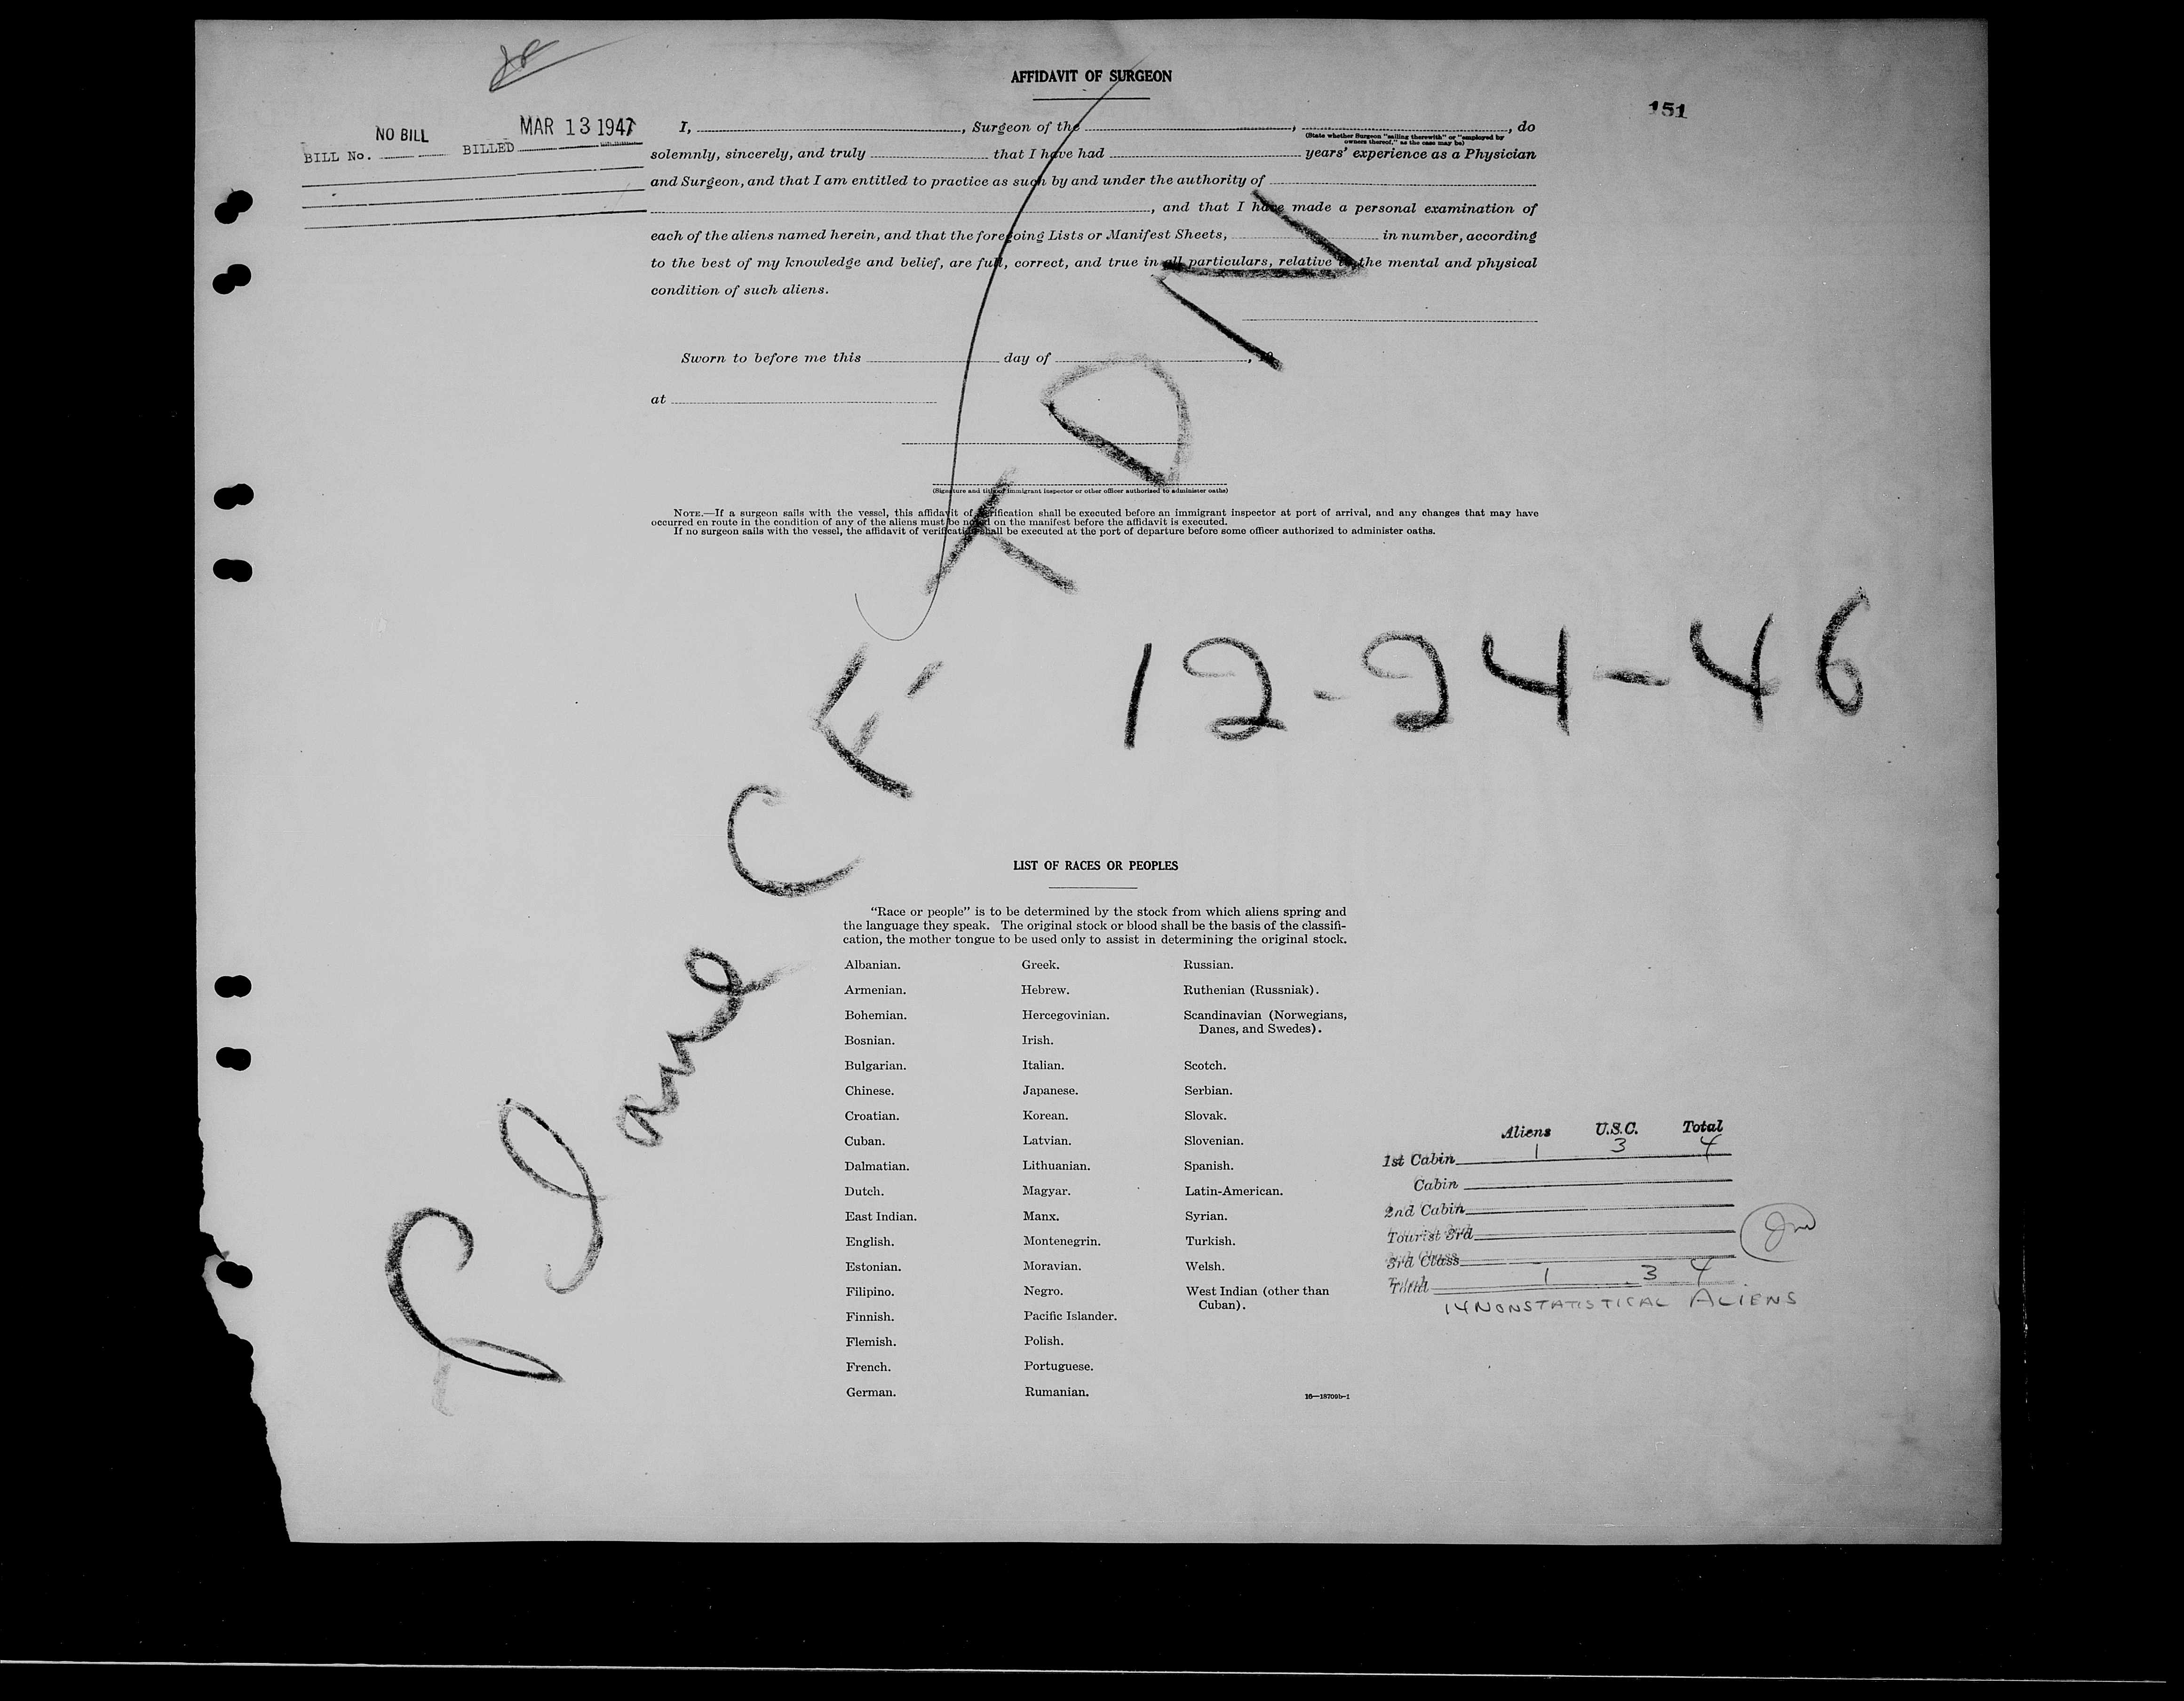 AFFIDAVIT OF SURGEON
151
NO BILL
MAR 13 1947
BILL No. BILLED
I, , Surgeon of the , , do
(State whether Surgeon "sailing therewith" or "employed by
owners thereof," as the case may be)
solemnly, sincerely, and truly that I have had years' experience as a Physician
and Surgeon, and that I am entitled to practice as such by and under the authority of
, and that I have made a personal examination of
each of the aliens named herein, and that the foregoing Lists or Manifest Sheets, in number, according
to the best of my knowledge and belief, are full, correct, and true in all particulars, relative to the mental and physical
condition of such aliens.
Sworn to before me this day of , 19
at
(Signature and title of immigrant inspector or other officer authorized to administer oaths)
NOTE.—If a surgeon sails with the vessel, this affidavit of verification shall be executed before an immigrant inspector at port of arrival, and any changes that may have
occurred en route in the condition of any of the aliens must be noted on the manifest before the affidavit is executed.
If no surgeon sails with the vessel, the affidavit of verification shall be executed at the port of departure before some officer authorized to administer oaths.
Plane CF-TDN
12-24-46
LIST OF RACES OR PEOPLES
"Race or people" is to be determined by the stock from which aliens spring and
the language they speak. The original stock or blood shall be the basis of the classifi-
cation, the mother tongue to be used only to assist in determining the original stock.
Albanian. Greek. Russian.
Armenian. Hebrew. Ruthenian (Russniak).
Bohemian. Hercegovinian. Scandinavian (Norwegians,
Danes, and Swedes).
Bosnian. Irish.
Bulgarian. Italian. Scotch.
Chinese. Japanese. Serbian.
Croatian. Korean. Slovak.
Cuban. Latvian. Slovenian.
Dalmatian. Lithuanian. Spanish.
Dutch. Magyar. Latin-American.
East Indian. Manx. Syrian.
English. Montenegrin. Turkish.
Estonian. Moravian. Welsh.
Filipino. Negro. West Indian (other than
Cuban).
Finnish. Pacific Islander.
Flemish. Polish.
French. Portuguese.
German. Rumanian.
16—18709b-1
Aliens U.S.C. Total
1st Cabin 1 3 4
Cabin
2nd Cabin
Tourist 3rd
3rd Class
Total 1 3 4
14 NONSTATISTICAL ALIENS